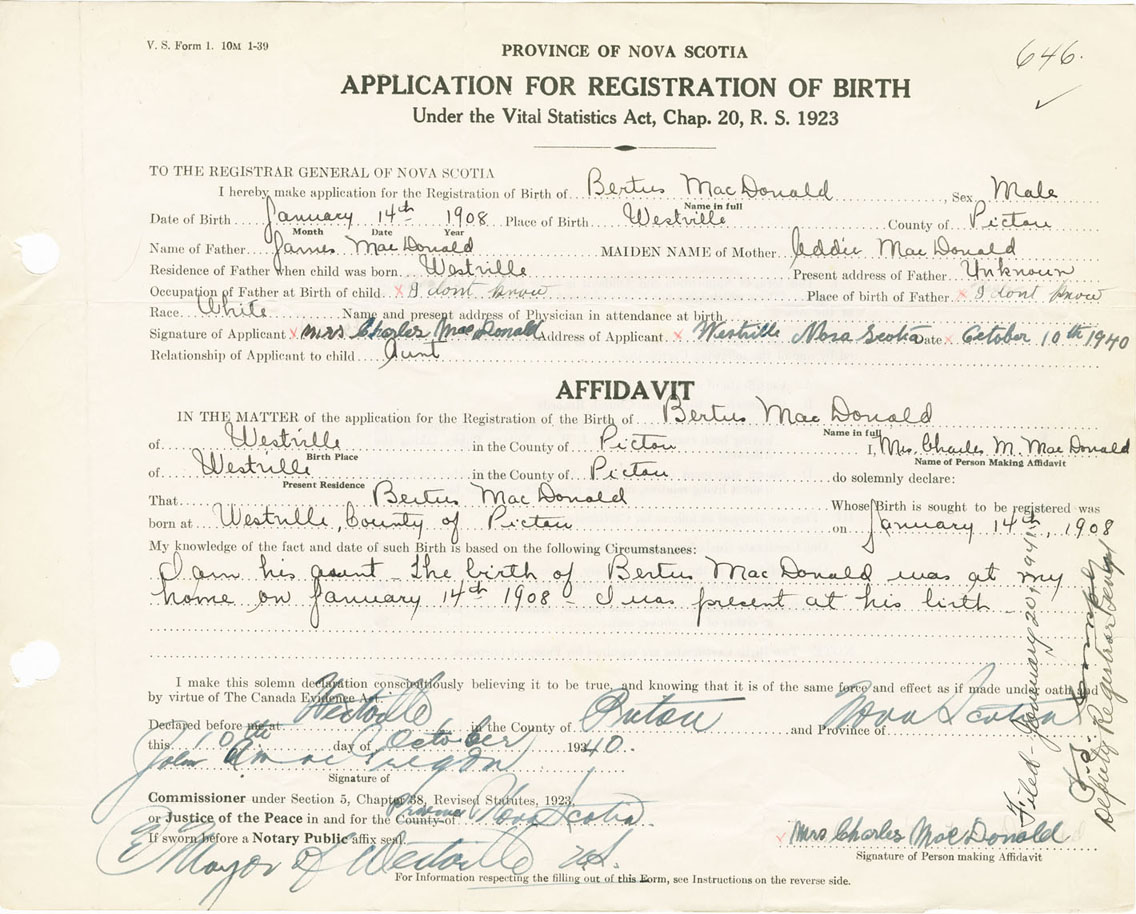 V. S. Form 1. 10M 1-39
646.
PROVINCE OF NOVA SCOTIA
APPLICATION FOR REGISTRATION OF BIRTH
Under the Vital Statistics Act, Chap. 20, R. S. 1923
TO THE REGISTRAR GENERAL OF NOVA SCOTIA
I hereby make application for the Registration of Birth of Bertus MacDonald, Sex Male
Name in full
Date of Birth January 14th 1908 Place of Birth Westville County of Pictou
Month Date Year
Name of Father James MacDonald MAIDEN NAME of Mother Eddie MacDonald
Residence of Father when child was born Westville Present address of Father Unknown
Occupation of Father at Birth of child x I dont know Place of birth of Father x I dont know
Race White Name and present address of Physician in attendance at birth
Signature of Applicant x Mrs Charles MacDonald Address of Applicant x Westville Nova Scotia Date x October 10th 1940
Relationship of Applicant to child Aunt
AFFIDAVIT
IN THE MATTER of the application for the Registration of the Birth of Bertus MacDonald
Name in full
of Westville in the County of Pictou I, Mrs. Charles M. MacDonald
Birth Place Name of Person Making Affidavit
of Westville in the County of Pictou do solemnly declare:
Present Residence
That Bertus MacDonald Whose Birth is sought to be registered was
born at Westville, County of Pictou on January 14th, 1908
My knowledge of the fact and date of such Birth is based on the following Circumstances:
I am his aunt - The birth of Bertus MacDonald was at my
home on January 14th 1908 - I was present at his birth
I make this solemn declaration conscientiously believing it to be true, and knowing that it is of the same force and effect as if made under oath and
by virtue of The Canada Evidence Act.
Declared before me at Westville in the County of Pictou and Province of Nova Scotia
this 10th day of October 1940.
John MacGregor
Signature of
Commissioner under Section 5, Chapter 38, Revised Statutes, 1923,
or Justice of the Peace in and for the County of Province Nova Scotia.
If sworn before a Notary Public affix seal.
Mayor of Westville N.S.
Mrs Charles MacDonald
Signature of Person making Affidavit
For Information respecting the filling out of this Form, see Instructions on the reverse side.
Filed - January 20, 1941
Deputy Registrar General